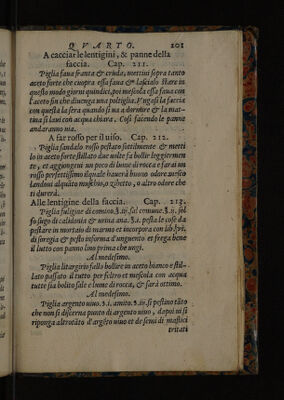 QVARTO. 101
A cacciar le lentigini, & panne della
faccia. Cap. 211.
Piglia faua franta & cruda, mettiui sopra tanto
aceto forte che cuopra essa faua & lascialo stare in
questo modo giorni quindici, poi mescola essa faua con
l'aceto fin che diuenga una poltiglia. Vngasi la faccia
con questa la sera quando si ua a dormire & la mat-
tina si laui con acqua chiara. Cosi facendo le panne
andaranno uia.
A far rosso per il uiso. Cap. 212.
Piglia sandalo rosso pestato sottilmente & metti
lo in aceto forte stillato due uolte fa bollir leggiermen
te, et aggiungeui un poco di lume di rocca e sarai un
rosso perfettissimo il quale hauerà buono odore messo
landoui alquāto muschio, o zibetto, o altro odore che
ti diuerà.
Alle lentigine della faccia. Cap. 213.
Piglia fuligine di camino. ℥. iij. sal comune. ℥. ij. sol
fo di calidonia & urina ana. ℥. i. pesta le cose da
pestare in mortaio di marmo et incorpora con lib.
di songia & pesto informa d'unguento et frega bene
il tutto con panno lino prima che ungi.
Al medesimo.
Piglia litargirio fallo bollire in aceto bianco e stil-
lato passato il tutto per feltro et mescola con acqua
tutte sia bolito sale e lume di rocca, & sarà ottimo.
Al medesimo.
Piglia argento uiuo. ℥. i. amito. ℥. iij. si pestino tāto
che non si discerna punto di argento uiuo, dapoi ui si
riponga altrotāto d'argēto uiuo et de semi di mastici
tritati